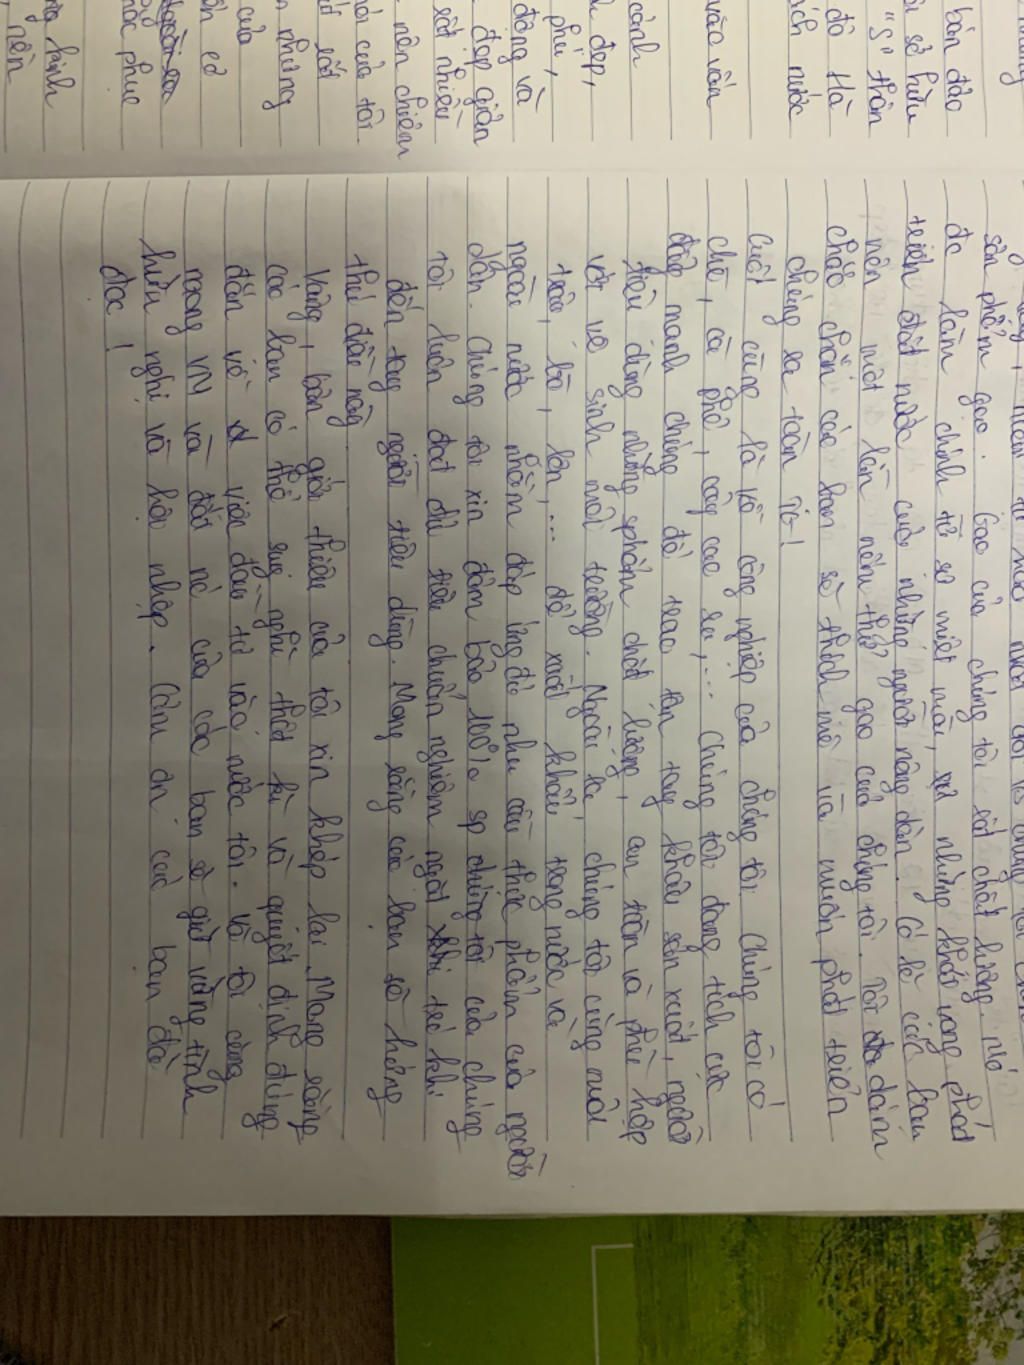 bán đảo
sở hữu
"S" thân
đô Hà
ách nước
vào văn
cảnh
đẹp,
phú,
động và
đẹp giản
rất nhiều
nên chiêm
của tôi.
rất
những
của
phục
kinh
nên
sản phẩm gạo. Gạo của chúng tôi rất chất lượng. Nó
đc làm chính từ sự miệt mài, những khát vọng phát
triển đất nước của những người nông dân. Có lẽ các bạn
nên một lần nếm thử gạo của chúng tôi. Tôi dám
chắc chắn các bạn sẽ thích nó và muốn phát triển
chúng ra toàn
Cuối cùng là về công nghiệp của chúng tôi. Chúng tôi có
chè, cà phê, cây cao su,... Chúng tôi đang tích cực
đẩy mạnh chúng để trao tận tay khâu sản xuất, người
tiêu dùng những sphẩm chất lượng, an toàn và phù hợp
với vệ sinh môi trường. Ngoài ra chúng tôi cũng nuôi
trâu, bò, lợn,... để xuất khẩu trong nước và
ngoài nước nhằm đáp ứng đủ nhu cầu thực phẩm của người
dân. Chúng tôi xin đảm bảo, 100% sp chúng tôi của chúng
tôi luôn đạt đủ tiêu chuẩn nghiêm ngặt trc khi
đến tay người tiêu dùng. Mong rằng các bạn sẽ hưởng
thụ điều này.
Vâng, bản giới thiệu của tôi xin khép lại. Mong rằng
các bạn có thể suy nghĩ thật kĩ và quyết định đúng
đắn về việc đầu tư vào nước tôi. Và tôi cũng
mong VN và đất nc của các bạn sẽ giữ vững tình
hữu nghị và hội nhập. Cảm ơn các bạn đã
đọc!